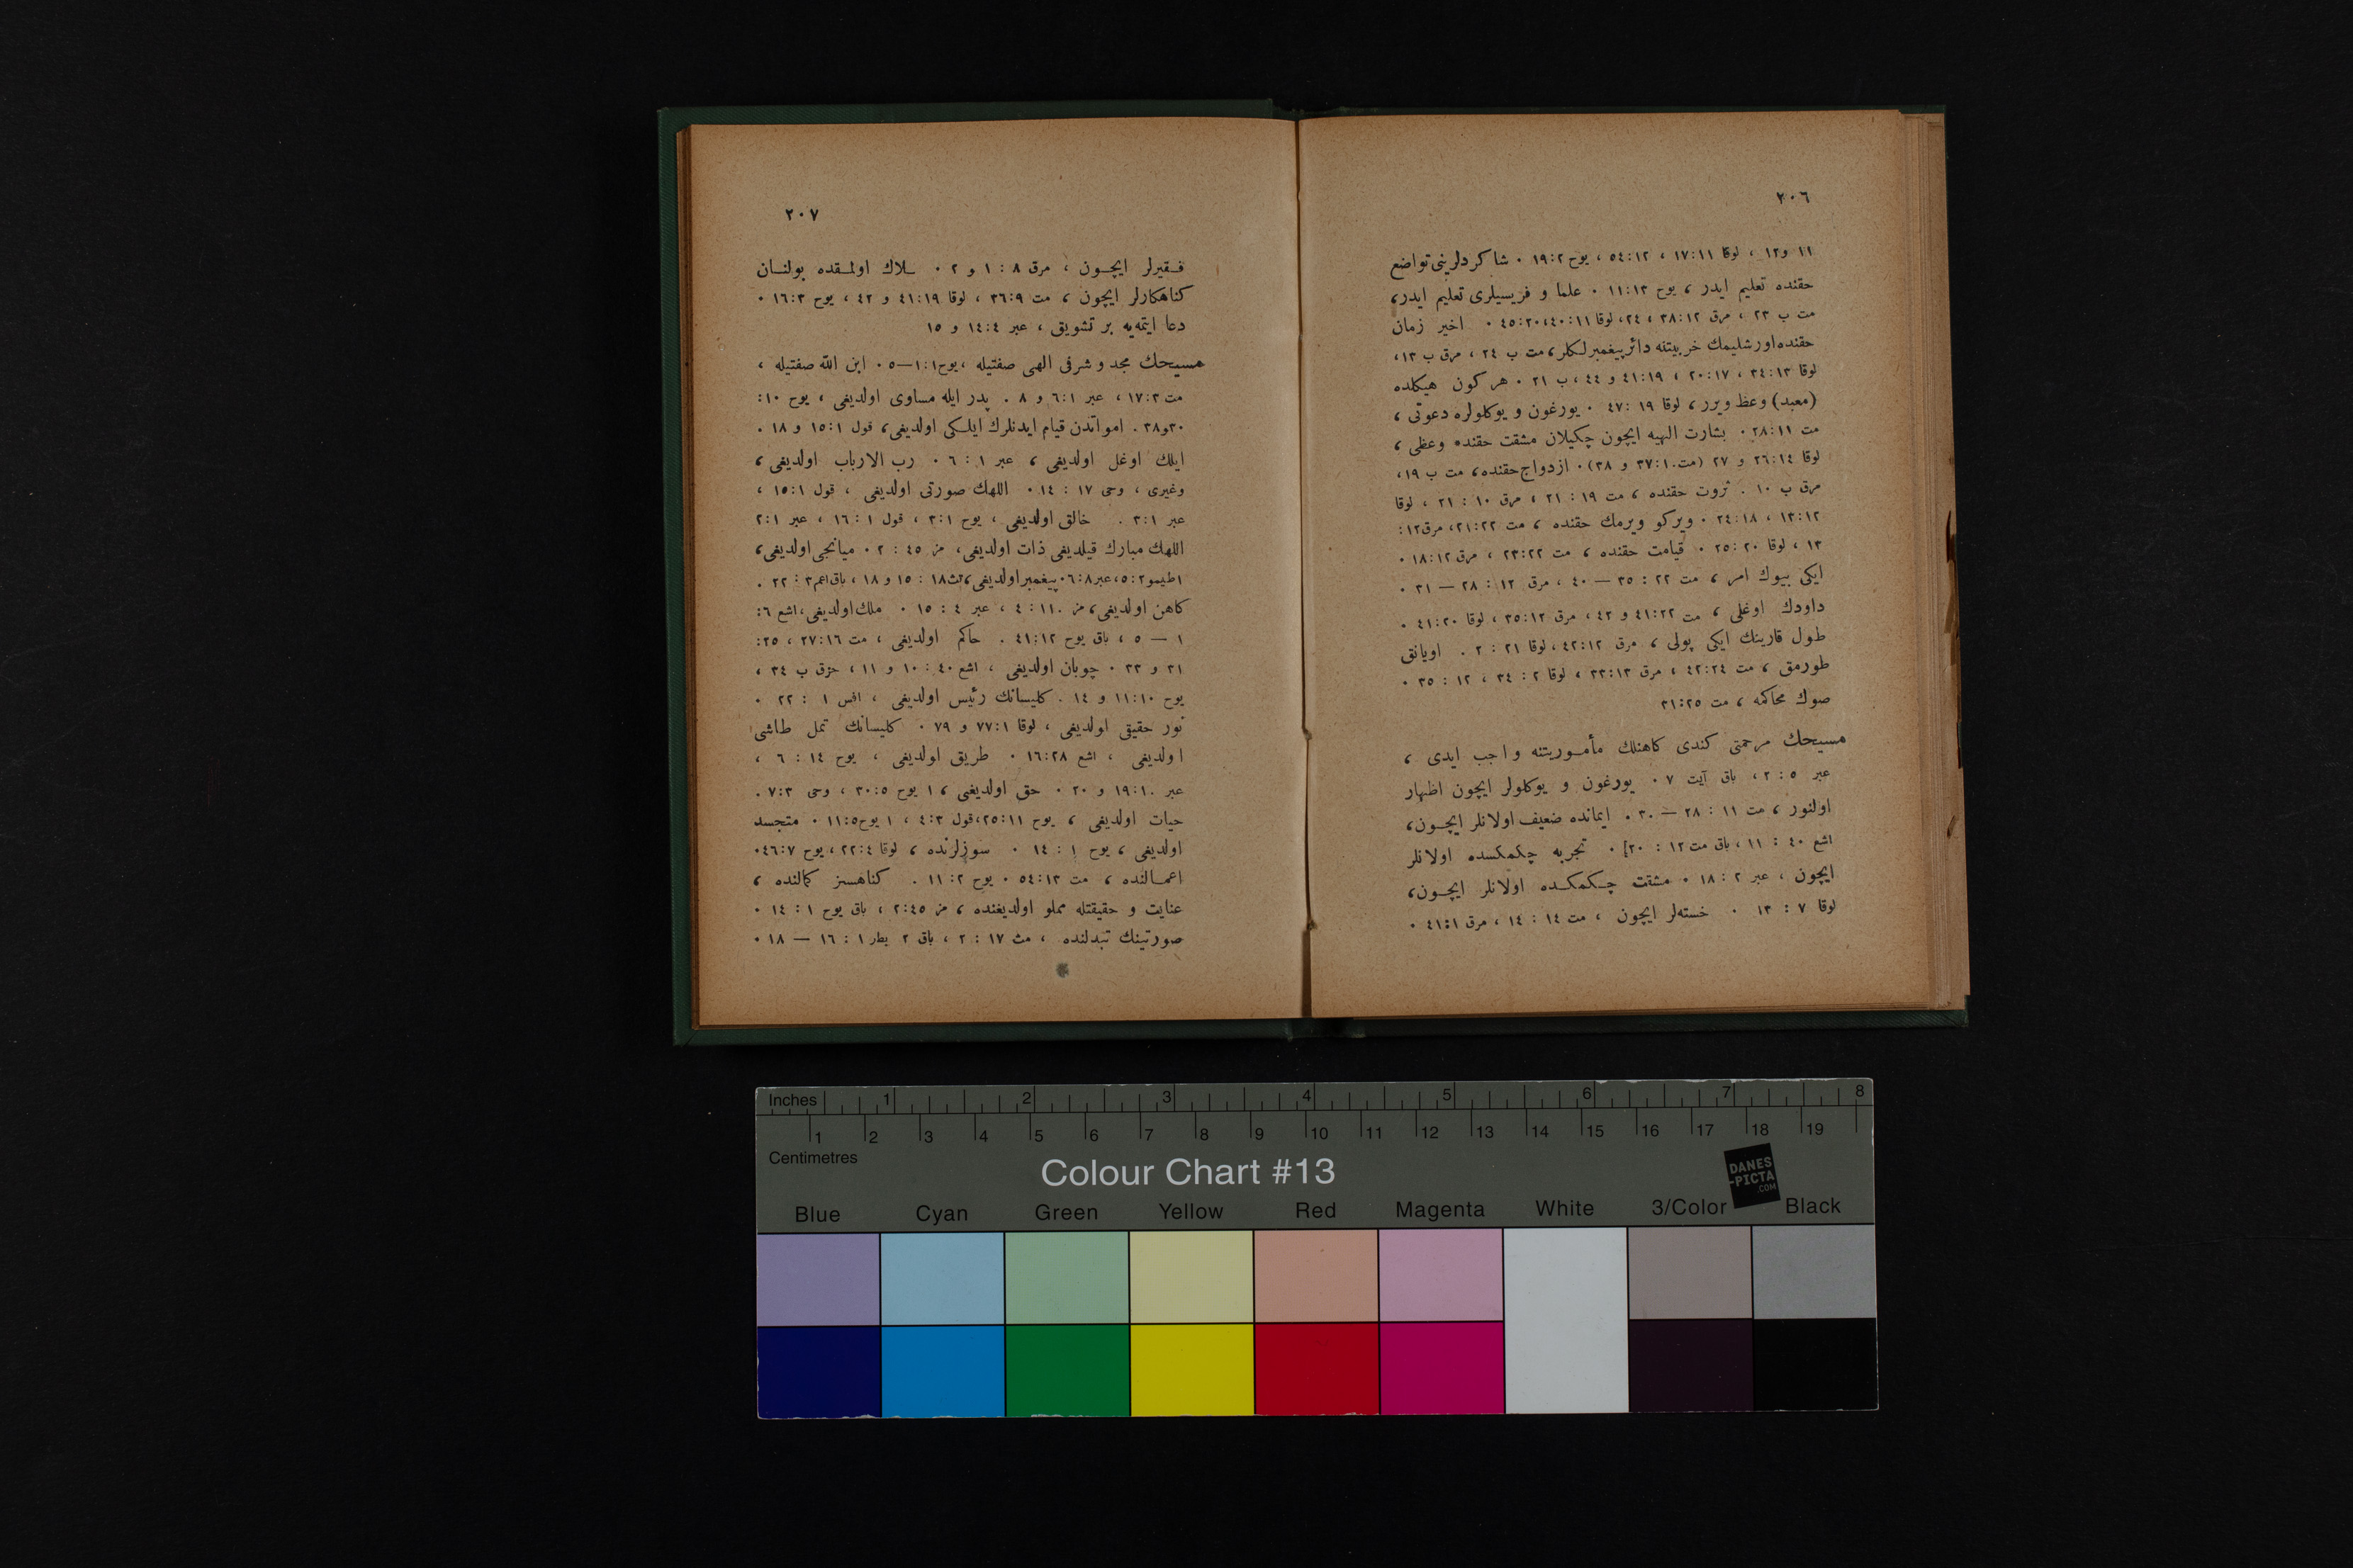 ٢٠٦
١١ و١٢ ، لوقا ١٧:١١ ، ٥٤:١٢ ، يوح ١٩:٢ ٠ شاكردلرينى تواضع
حقنده تعليم ايدر ، يوح ١١:١٣ ٠ علما و فريسيلرى تعليم ايدر،
مت ب ٢٣ ، مرق ٣٨:١٢ ، ٢٤، لوقا ٤٠:١١، ٤٥:٢٠ ٠ اخير زمان
حقنده اورشليمك خربيتنه دائر پيغمبرلكلر، مت ب ٢٤ ، مرق ب ١٣،
لوقا ٣٤:١٣ ، ٢٠:١٧ ، ٤١:١٩ و ٤٤ ، ب ٢١ ٠ هر كون هيكلده
(معبد) وعظ ويرر ، لوقا ١٩ :٤٧ ٠ يورغون و يوكلولره دعوتى ،
مت ٢٨:١١ ٠ بشارت الهيه ايچون چكيلان مشقت حقنده وعظى ،
لوقا ٢٦:١٤ و ٢٧ (مت٣٧:١٠ و ٣٨) ٠ ازدواج حقنده، مت ب ١٩،
مرق ب ١٠ . ثروت حقنده ، مت ١٩ : ٢١ ، مرق ١٠ : ٢١ ، لوقا
١٣:١٢ ، ٢٤:١٨ ٠ ويركو ويرمك حقنده ، مت ٢١:٢٢، مرق١٢:
١٣ ، لوقا ٢٥:٢٠ ٠ قيامت حقنده ، مت ٢٣:٢٢ ، مرق ١٨:١٢ ٠
ايكى بيوك امر ، مت ٢٢ : ٣٥ — ٤٠ ، مرق ١٢ : ٢٨ — ٣١ ٠
داودك اوغلى ، مت ٤١:٢٢ و ٤٢ ، مرق ٣٥:١٢ ، لوقا ٤١:٢٠ ٠
طول قارينك ايكى پولى ، مرق ٤٢:١٢ ، لوقا ٢١ : ٢ . اويانق
طورمق ، مت ٤٢:٢٤ ، مرق ٣٣:١٣ ، لوقا ٢ : ٣٤ ، ١٢ : ٣٥ ٠
صوك محاكمه ، مت ٣١:٢٥
مسيحك مرحمتى كندى كاهنلك مأموريتنه واجب ايدى ،
عبر ٥ : ٢ ، باق آيت ٧ ٠ يورغون و يوكلولر ايچون اظهار
اولنور ، مت ١١ : ٢٨ — ٣٠ ٠ ايمانده ضعيف اولانلر ايچون،
اشع ٤٠ : ١١ ، باق مت ١٢ : ٢٠] ٠ تجربه چكمكسده اولانلر
ايچون ، عبر ٢ : ١٨ ٠ مشقت چكمكده اولانلر ايچون،
لوقا ٧ : ١٣ ٠ خسته‌لر ايچون ، مت ١٤ : ١٤ ، مرق ٤١:١ ٠
٢٠٧
فقيرلر ايچون ، مرق ٨ : ١ و ٢ ٠ هلاك اولمقده بولنان
كناهكارلر ايچون ، مت ٣٦:٩ ، لوقا ٤١:١٩ و ٤٢ ، يوح ١٦:٣ ٠
دعا ايتمه‌يه بر تشويق ، عبر ١٤:٤ و ١٥
مسيحك مجد و شرفى الهى صفتيله ، يوح١:١—٥ ٠ ابن الله صفتيله ،
مت ١٧:٣ ، عبر ٦:١ و ٨ . پدر ايله مساوى اولديغى ، يوح ١٠:
٣٠و٣٨ . امواتدن قيام ايدنلرك ايلكى اولديغى، قول ١٥:١ و ١٨ ٠
ايلك اوغل اولديغى ، عبر ١ : ٦ ٠ رب الارباب اولديغى ،
وغيرى ، وحى ١٧ : ١٤ ٠ اللهك صورتى اولديغى ، قول ١٥:١ ،
عبر ٣:١ . خالق اولديغى ، يوح ٣:١ ، قول ١ : ١٦ ، عبر ٢:١
اللهك مبارك قيلديغى ذات اولديغى، مز ٤٥ : ٢ ٠ ميانجى اولديغى،
١طيمو٥:٢،عبر٦:٨ ٠پيغمبر اولديغى،تث١٨ : ١٥ و ١٨ ، باق اعم٣ : ٢٢ .
كاهن اولديغى، مز ١١٠ : ٤ ، عبر ٤ : ١٥ ٠ ملك اولديغى، اشع ٦:
١ — ٥ ، باق يوح ٤١:١٢ . حاكم اولديغى ، مت ٢٧:١٦ ، ٢٥:
٣١ و ٣٣ ٠ چوبان اولديغى ، اشع ٤٠ : ١٠ و ١١ ، حزق ب ٣٤ ،
يوح ١١:١٠ و ١٤ . كليسانك رئيس اولديغى ، افس ١ : ٢٢ ٠
نور حقيقى اولديغى ، لوقا ٧٧:١ و ٧٩ ٠ كليسانك تمل طاشى
اولديغى ، اشع ١٦:٢٨ ٠ طريق اولديغى ، يوح ١٤ : ٦ ،
عبر ١٩:١٠ و ٢٠ ٠ حق اولديغى ، ١ يوح ٢٠:٥ ، وحى ٧:٣ .
حيات اولديغى ، يوح ٢٥:١١، قول ٤:٣ ، ١ يوح١١:٥ ٠ متجسد
اولديغى ، يوح ١ : ١٤ ٠ سوزلرنده ، لوقا ٢٢:٤، يوح ٤٦:٧ ٠
اعمالنده ، مت ٥٤:١٣ ٠ يوح ١١:٢ . كناهسز كمالنده ،
عنايت و حقيقتله مملو اولديغنده ، مز ٢:٤٥ ، باق يوح ١ : ١٤ ٠
صورتينك تبدلنده ، مت ١٧ : ٢ ، باق ٢ بطر ١ : ١٦ — ١٨ ٠
Inches 1 2 3 4 5 6 7 8
1 2 3 4 5 6 7 8 9 10 11 12 13 14 15 16 17 18 19
Centimetres
Colour Chart #13
DANES
-PICTA
.COM
Blue Cyan Green Yellow Red Magenta White 3/Color Black